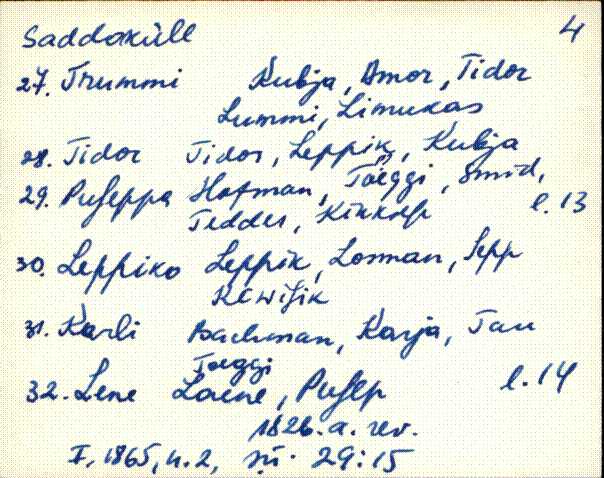 Saddoküll 4
27. Trummi Kubja, Amor, Tidor
Lummi, Limukas
28. Tidor Tidor, Leppik, Kubja
29. Puseppa Hofman, Toeggi, Smid,
Tedder, l. 13
30. Leppiko Leppik, Losman, Sepp
Kiwisik
31. Karli Bachman, Karja, Tau
Toeggi
32. Lene Laene, Pusep l. 14
1826. a. rev.
I, 1865, n. 2, sü. 29:15